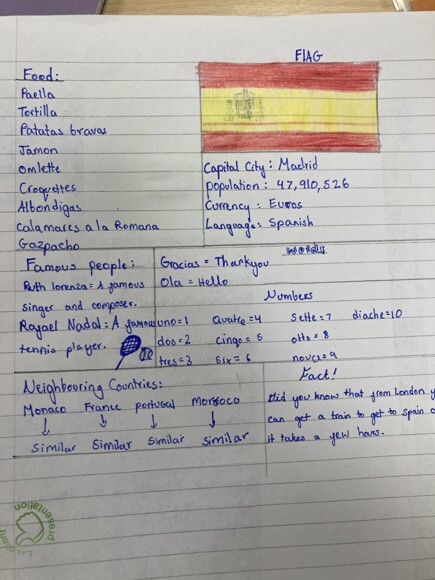 FlAG
Food:
Paella
Tortilla
Patatas bravas
Jamon
Omlette
Croquettes
Albondigas
calamares a la Romana
Gazpacho
Capital City: Madrid
population: 47,910,526
Currency: Euros
Language: Spanish
Famous people:
Ruth lorenza= A famous
singer and composer.
Rafael Nadal: A famous
tennis player.
words
Gracias = Thankyou
Ola = Hello
Numbers
uno=1 quatre=4 Sette=7 diache=10
dos=2 cinqo=5 otto=8
tres=3 six=6 nove=9
Neighbouring Countries:
Monaco France portugal Morroco
Similar Similar Similar Similar
Fact!
Did you know that from London y
can get a train to get to spain
it takes a few hours.
Presentation